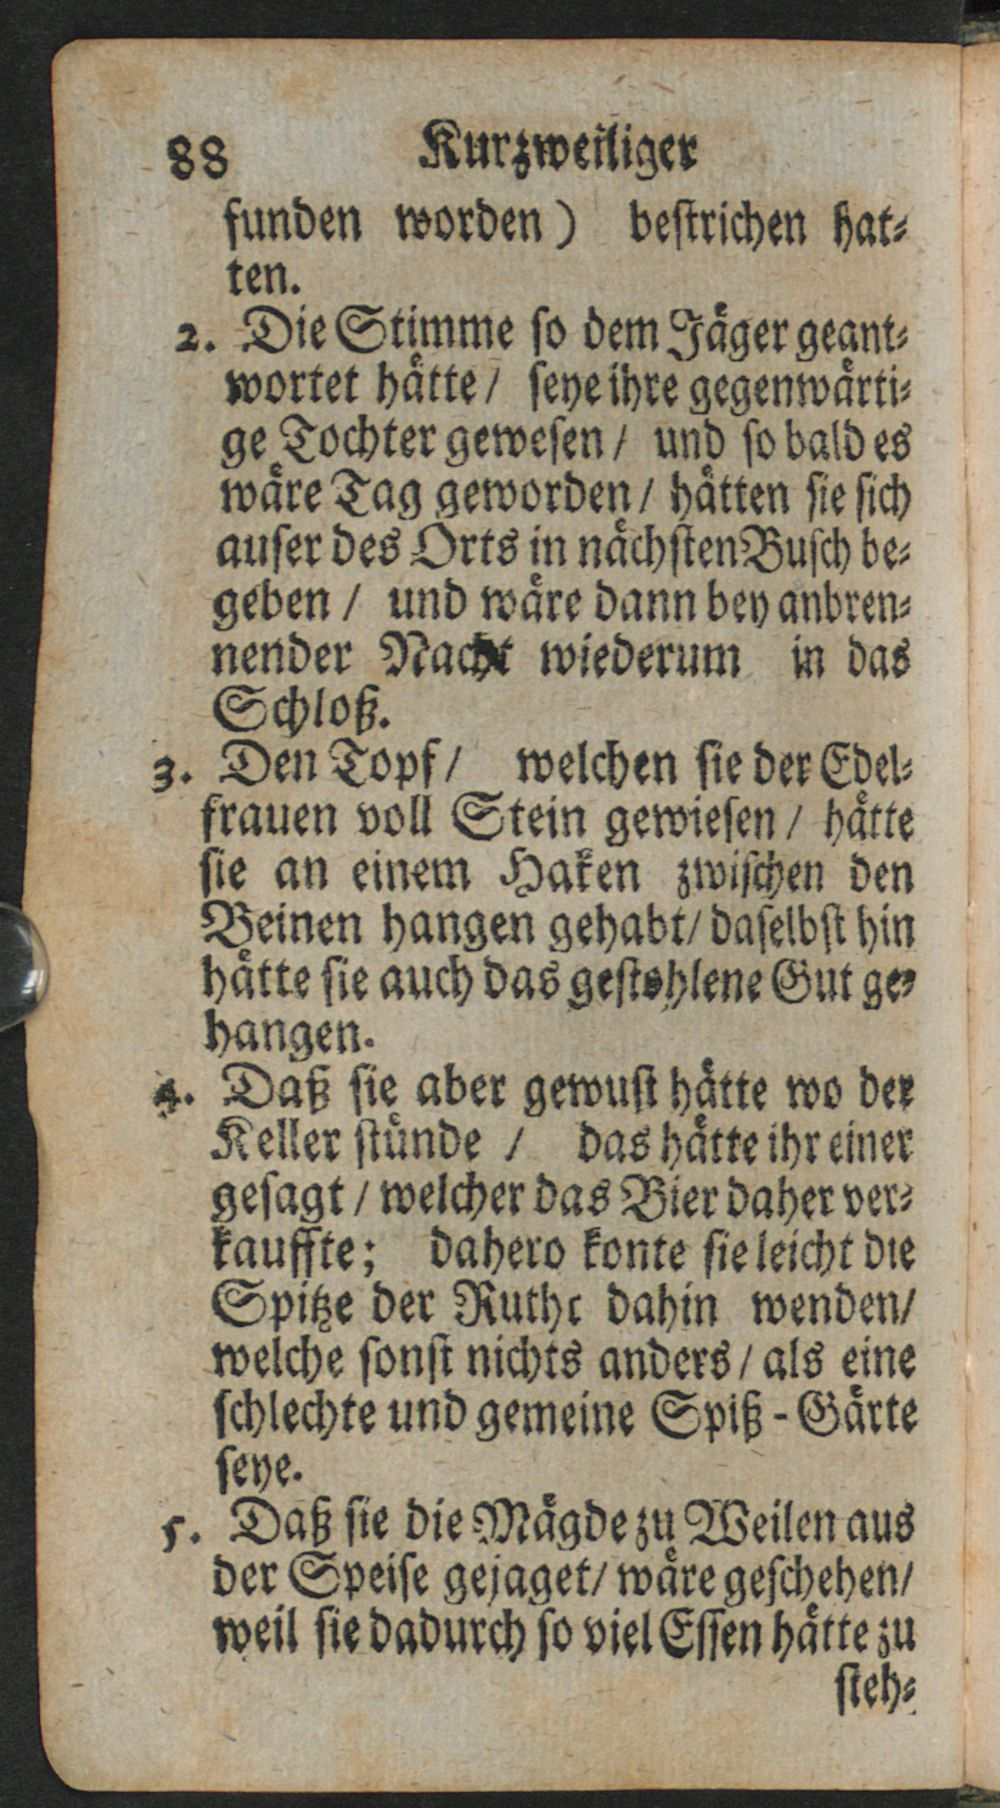 88 Kurzweiliger
funden worden) bestrichen hat-
ten.
2. Die Stimme so dem Jäger geant-
wortet hätte / seye ihre gegenwärti-
ge Tochter gewesen / und so bald es
wäre Tag geworden / hätten sie sich
auser des Orts in nächsten Busch be-
geben / und wäre dann bey anbren-
nender Nacht wiederum in das
Schloß.
3. Den Topf / welchen sie der Edel-
frauen voll Stein gewiesen / hätte
sie an einem Haken zwischen den
Beinen hangen gehabt / daselbst hin
hätte sie auch das gestohlene Gut ge-
hangen.
4. Daß sie aber gewust hätte wo der
Keller stünde / das hätte ihr einer
gesagt / welcher das Bier daher ver-
kauffte; dahero konte sie leicht die
Spitze der Ruthe dahin wenden /
welche sonst nichts anders / als eine
schlechte und gemeine Spiß-Gärte
seye.
5. Daß sie die Mägde zu Weilen aus
der Speise gejaget / wäre geschehen /
weil sie dadurch so viel Essen hätte zu
steh-